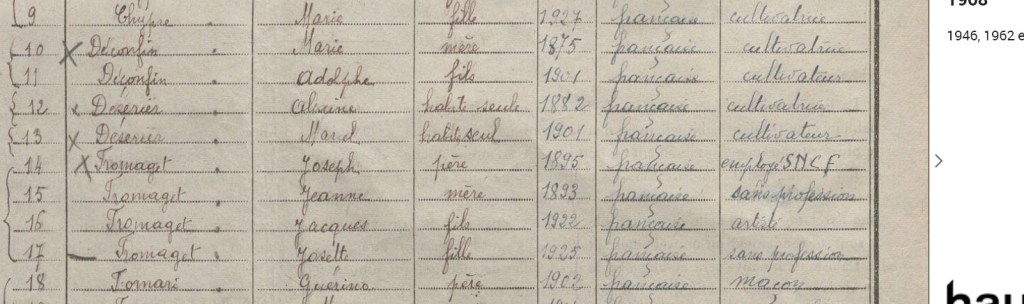 9 Chypre Marie fille 1927 française cultivatrice
10 X Déconfin Marie mère 1875 française cultivatrice
11 Déconfin Adolphe fils 1901 française cultivateur
12 x Deserier habit seule 1882 française cultivatrice
13 x Deserier Marel habit seul 1901 française cultivateur
14 X Fromaget Joseph père 1895 française employé SNCF
15 Fromaget Jeanne mère 1893 française sans profession
16 Fromaget Jacques fils 1922 française artiste
17 Fromaget Josette fille 1925 française sans profession
18 Fornari Guérino père 1902 française maçon
1968
1946, 1962 e
hau